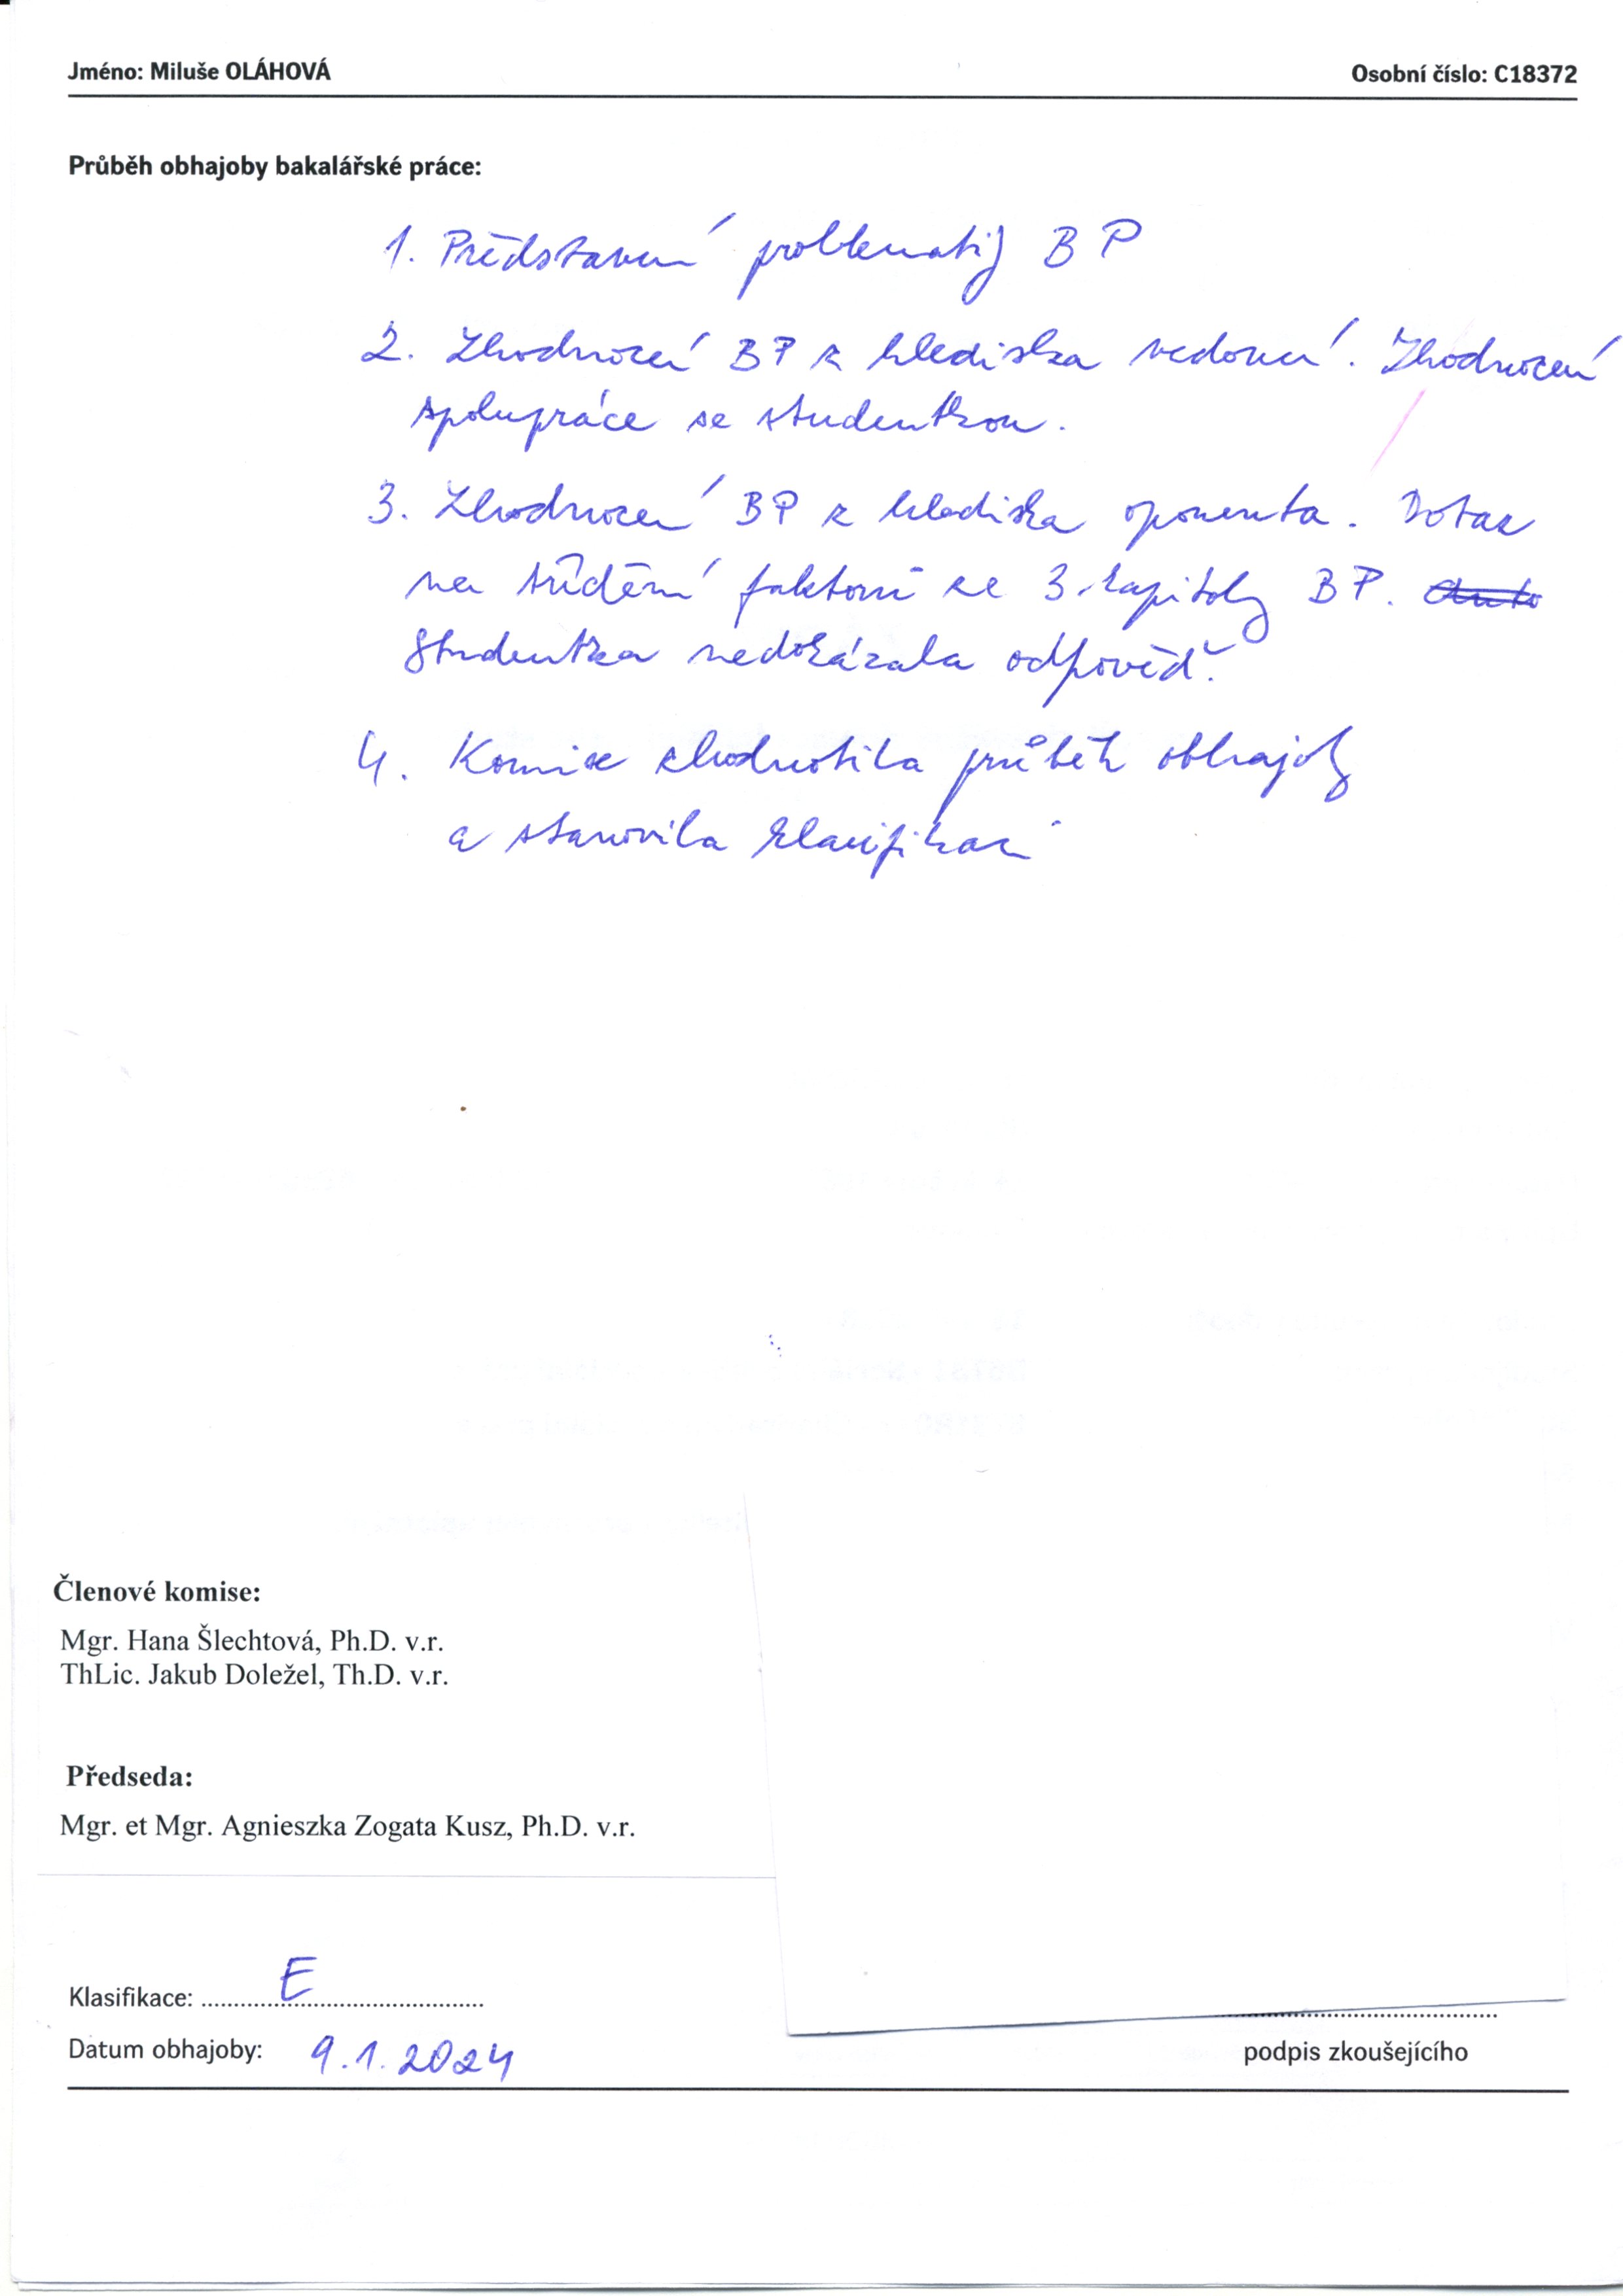 Jméno: Miluše OLÁHOVÁ
Osobní číslo: C18372
Průběh obhajoby bakalářské práce:
1. Představení problematiky BP
2. Zhodnocení BP z hlediska vedoucí. Zhodnocení
spolupráce se studentkou.
3. Zhodnocení BP z hlediska oponenta. Dotaz
na třídění faktorů ze 3. kapitoly BP.
Studentka nedokázala odpověď.
4. Komise zhodnotila průběh obhajoby
a stanovila klasifikaci
Členové komise:
Mgr. Hana Šlechtová, Ph.D. v.r.
ThLic. Jakub Doležel, Th.D. v.r.
Předseda:
Mgr. et Mgr. Agnieszka Zogata Kusz, Ph.D. v.r.
Klasifikace: E
Datum obhajoby: 9.1.2024
podpis zkoušejícího